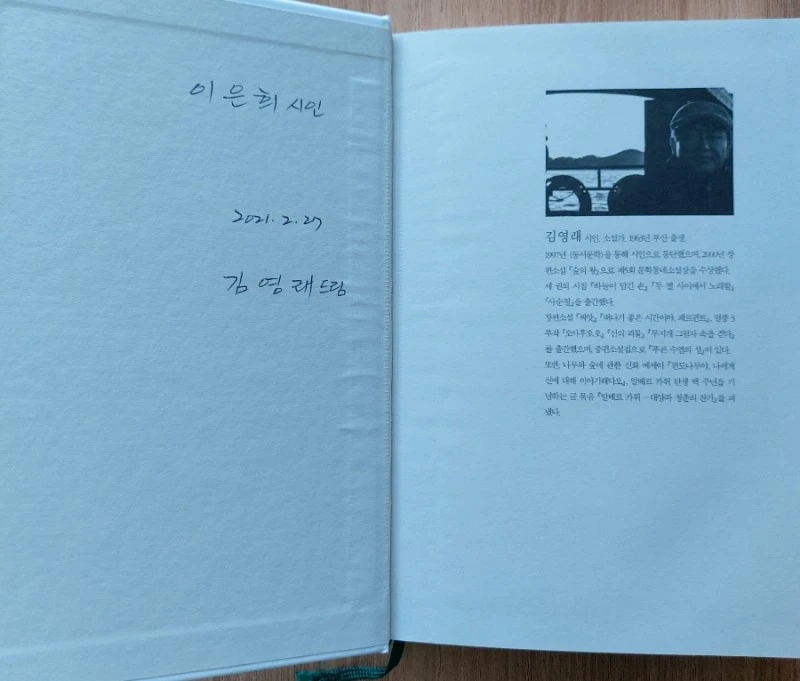 이은희 시인
2021. 2. 27
김영래 드림
김영래 시인, 소설가. 1963년 부산 출생.
1997년 《동서문학》을 통해 시인으로 등단했으며, 2000년 장
편소설 『숲의 왕』으로 제5회 문학동네소설상을 수상했다.
세 권의 시집 『하늘이 담긴 손』 『두 별 사이에서 노래함』
『사순절』을 출간했다.
장편소설 『씨앗』 『떠나기 좋은 시간이야, 페르귄트』, 연중 3
부작 『오아후오오』 『신의 괴물』 『무지개 그림자 속을 걷다』
를 출간했으며, 중편소설집으로 『푸른 수염의 성』이 있다.
또한, 나무와 숲에 관한 신화 에세이 『편도나무야, 나에게
신에 대해 이야기해다오』, 알베르 카뮈 탄생 백 주년을 기
념하는 글 묶음 『알베르 카뮈 ― 태양과 청춘의 찬가』를 펴
냈다.